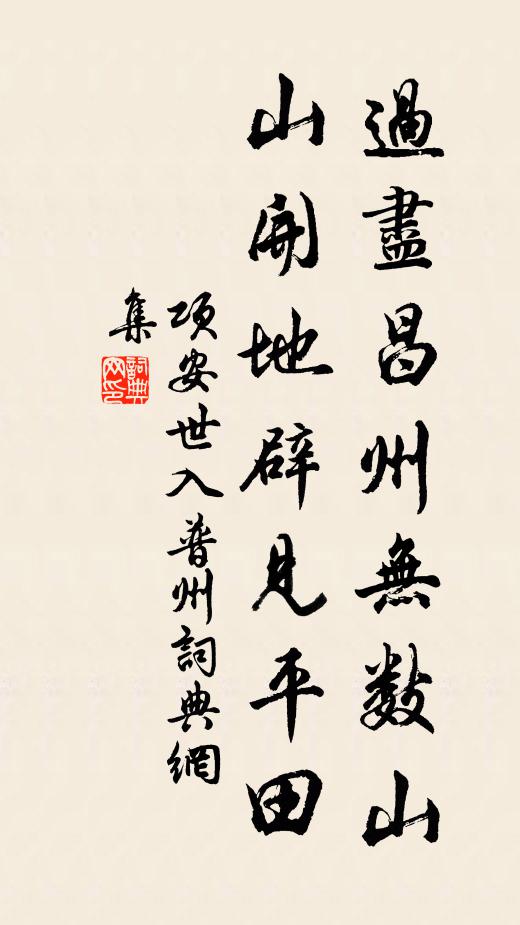 過盡昌州無數山
山開地辟見平田
項安世入普州詞典網
集
詞典網印